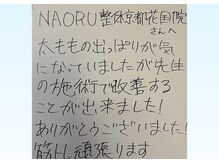 NAORU整体京都花園院
さんへ
太ももの出っぱりが気
になっていましたが先生
の施術で改善する
ことが出来ました!
ありがとうございました!
筋トレ頑張ります